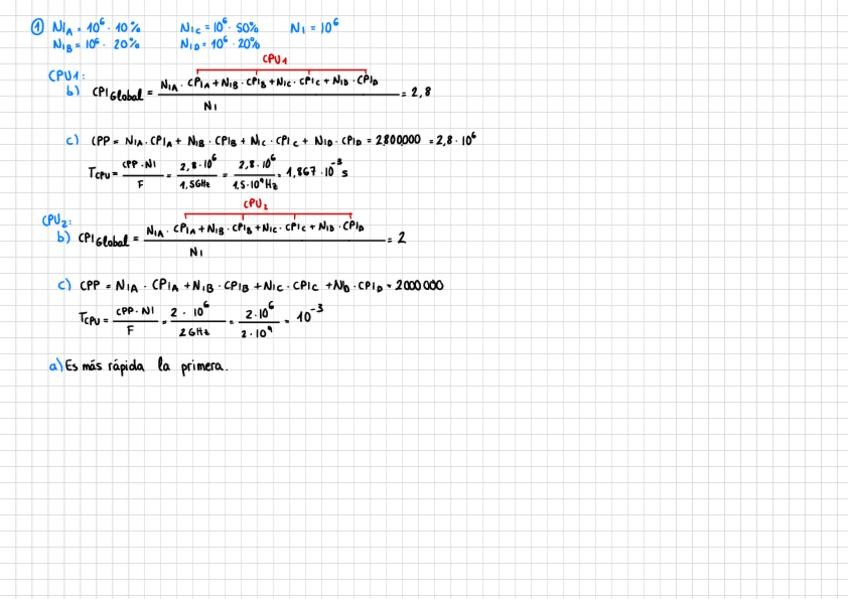 ① NIA = 10⁶ · 10% NIC = 10⁶ · 50% NI = 10⁶
NIB = 10⁶ · 20% NID = 10⁶ · 20%
CPU1
CPU1:
b) CPIGlobal = (NIA · CPIA + NIB · CPIB + NIC · CPIC + NID · CPID) / NI = 2,8
c) CPP = NIA · CPIA + NIB · CPIB + NIC · CPIC + NID · CPID = 2800000 = 2,8 · 10⁶
TCPU = CPP · NI / F = 2,8 · 10⁶ / 1,5GHz = 2,8 · 10⁶ / 1,5 · 10⁹ Hz = 1,867 · 10⁻³ s
CPU2
CPU2:
b) CPIGlobal = (NIA · CPIA + NIB · CPIB + NIC · CPIC + NID · CPID) / NI = 2
c) CPP = NIA · CPIA + NIB · CPIB + NIC · CPIC + NID · CPID = 2000000
TCPU = CPP · NI / F = 2 · 10⁶ / 2GHz = 2 · 10⁶ / 2 · 10⁹ = 10⁻³
a) Es más rápida la primera.